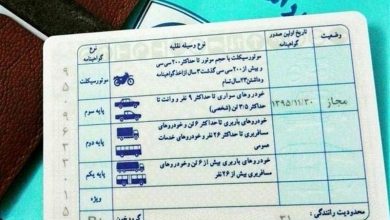 وضعیت
تاریخ اولین صدور گواهینامه
نوع وسیله نقلیه
نوع گواهینامه
موتورسیکلت با حجم موتور تا حداکثر ۲۰۰ سی سی
و بیش از ۲۰۰ سی سی گذشت ۳ سال از اخذ گواهینامه
و داشتن ۲۳ سال تمام
موتورسیکلت
مجاز
۱۳۹۵/۱۱/۳۰
خودروهای سواری تا حداکثر ۹ نفر و وانت تا
حداکثر ۳/۵ تن (شخصی)
پایه سوم
خودروهای باربری تا حداکثر ۶ تن و خودروهای
مسافربری تا حداکثر ۲۶ نفر و خودروهای خدمات
عمومی
پایه دوم
خودروهای باربری بیش از ۶ تن و خودروهای
مسافربری بیش از ۲۶ نفر
پایه یکم
ویژه
محدودیت رانندگی :
گروه خون